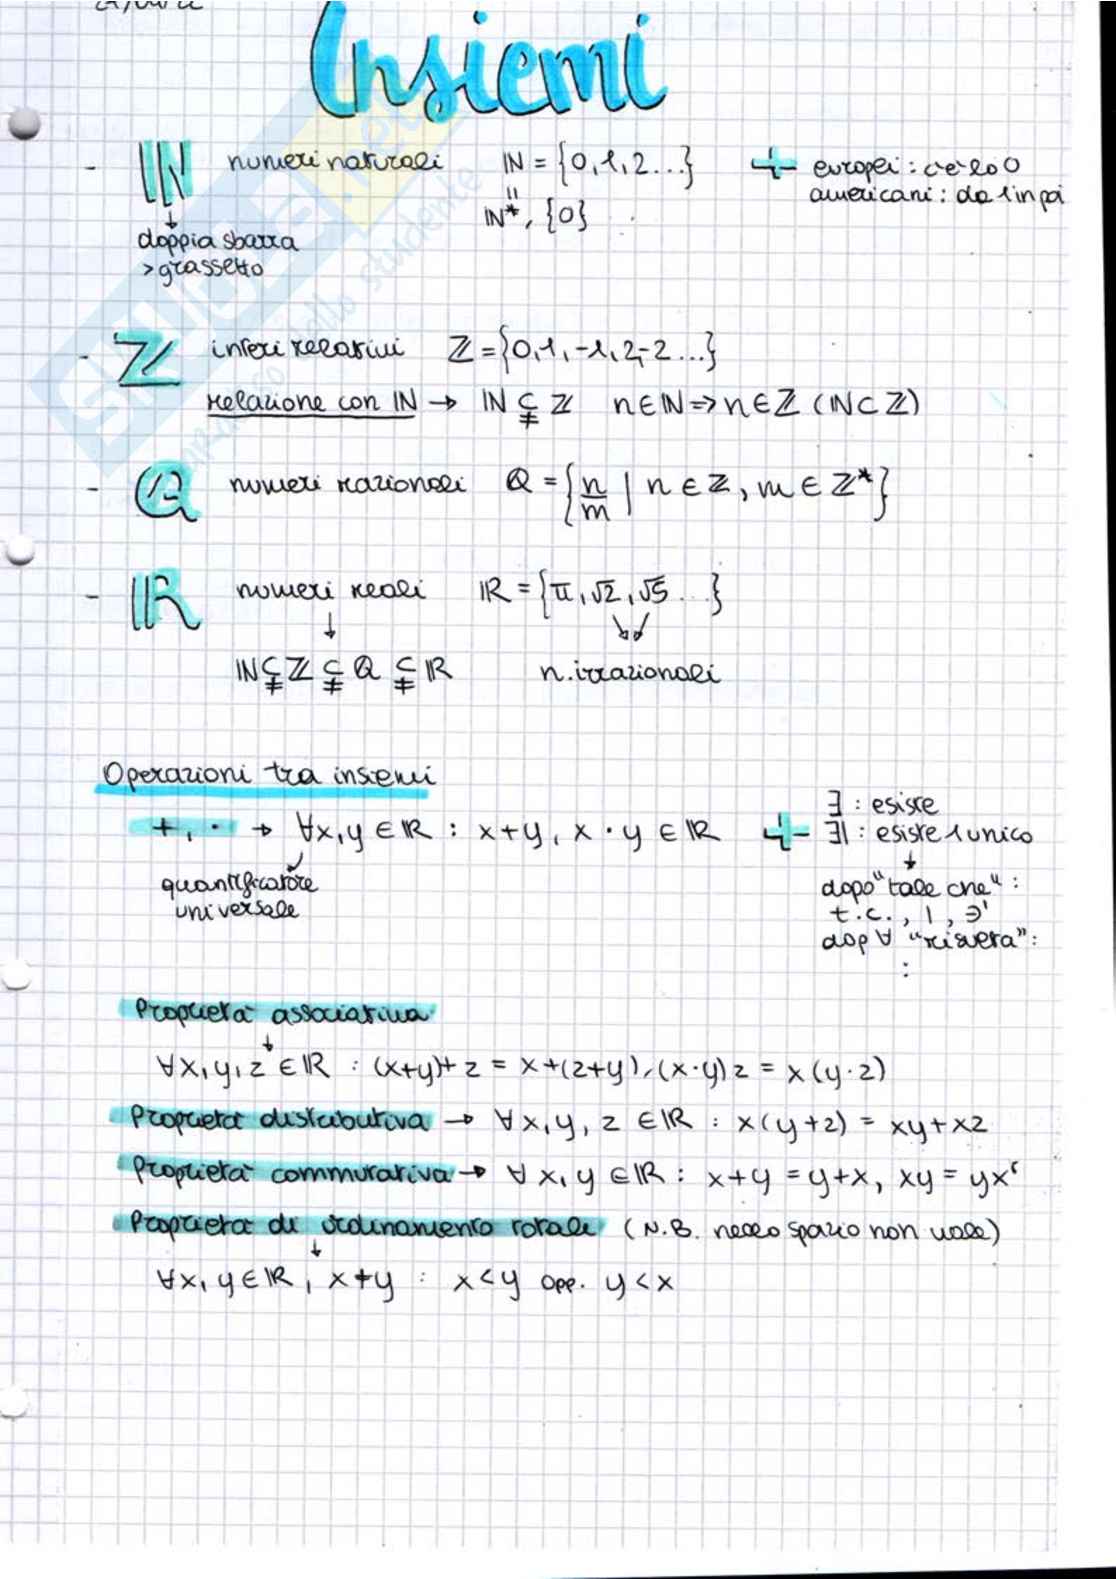 Insiemi
- ℕ numeri naturali ℕ = {0,1,2...} + europei: c'è lo 0
americani: da 1 in poi
=
ℕ*, {0}
↓
doppia sbarra
> grassetto
- ℤ interi relativi ℤ = {0,1,-1,2,-2...}
relazione con ℕ → ℕ ⊊ ℤ n∈ℕ ⇒ n∈ℤ (ℕ⊂ℤ)
- ℚ numeri razionali ℚ = {n/m | n ∈ ℤ, m ∈ ℤ*}
- ℝ numeri reali ℝ = {π, √2, √5 ...}
↓ ↘↙
ℕ ⊊ ℤ ⊊ ℚ ⊊ ℝ n. irrazionali
Operazioni tra insiemi
+, · → ∀x,y ∈ ℝ : x+y, x·y ∈ ℝ
quantificatore
universale
+ ∃ : esiste
∃| : esiste 1 unico
↓
dopo "tale che" :
t.c., |, ∋'
dop ∀ "risulta" :
:
Proprietà associativa
↓
∀x,y,z ∈ ℝ : (x+y)+z = x+(z+y), (x·y)z = x(y·z)
Proprietà distributiva → ∀x,y,z ∈ ℝ : x(y+z) = xy+xz
Proprietà commutativa → ∀x,y ∈ ℝ : x+y = y+x, xy = yx
Proprietà di ordinamento totale (N.B. nello spazio non vale)
↓
∀x,y ∈ ℝ, x≠y : x<y opp. y<x
SKUOLA.net
paradiso dello studente